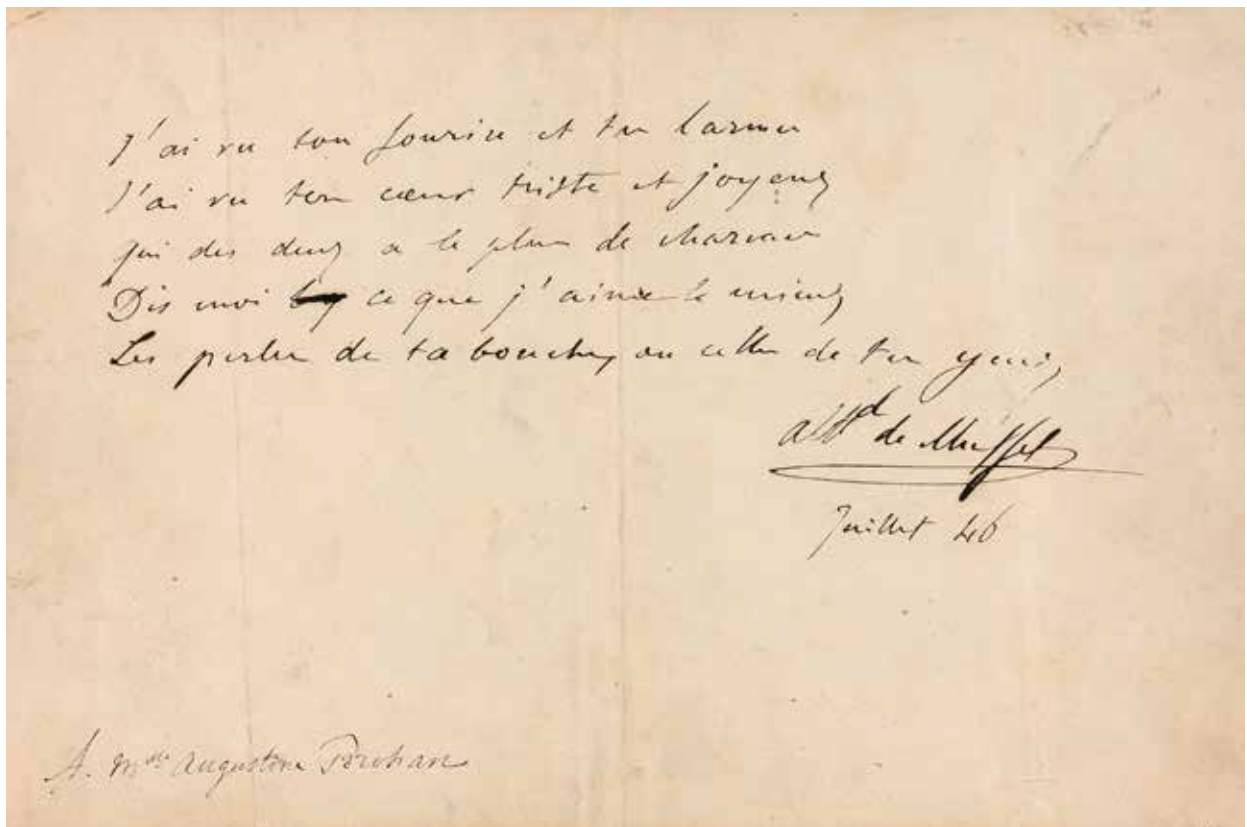 J'ai vu ton sourire et tes larmes
J'ai vu ton cœur triste et joyeux
qui des deux a le plus de charmes
Dis moi ce que j'aime le mieux
Les perles de ta bouche, ou celles de tes yeux,
Alfd de Musset
Juillet 46
A. Mlle Augustine Brohan